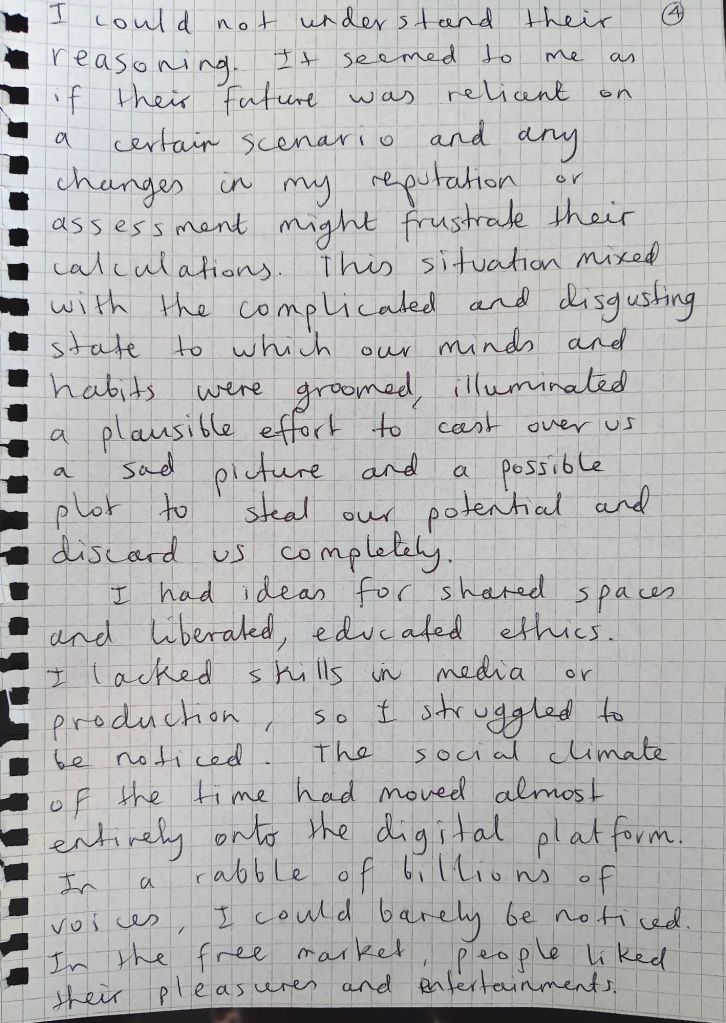 I could not understand their ④
reasoning. It seemed to me as
if their future was reliant on
a certain scenario and any
changes in my reputation or
assessment might frustrate their
calculations. This situation mixed
with the complicated and disgusting
state to which our minds and
habits were groomed, illuminated
a plausible effort to cast over us
a sad picture and a possible
plot to steal our potential and
discard us completely.
I had ideas for shared spaces
and liberated, educated ethics.
I lacked skills in media or
production, so I struggled to
be noticed. The social climate
of the time had moved almost
entirely onto the digital platform.
In a rabble of billions of
voices, I could barely be noticed.
In the free market, people liked
their pleasures and entertainments.